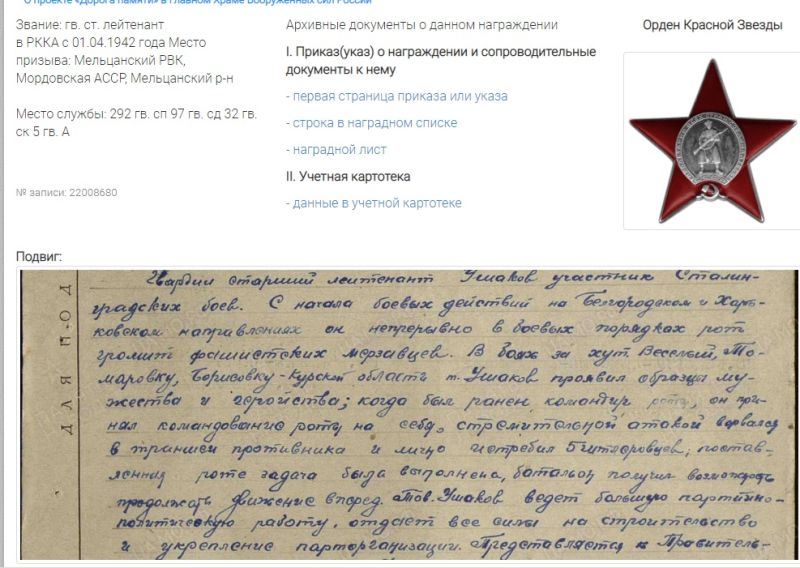 О проекте «Дорога памяти» в Главном Храме Вооруженных сил России
Звание: гв. ст. лейтенант
в РККА с 01.04.1942 года Место
призыва: Мельцанский РВК,
Мордовская АССР, Мельцанский р-н
Место службы: 292 гв. сп 97 гв. сд 32 гв.
ск 5 гв. А
№ записи: 22008680
Архивные документы о данном награждении
I. Приказ(указ) о награждении и сопроводительные
документы к нему
- первая страница приказа или указа
- строка в наградном списке
- наградной лист
II. Учетная картотека
- данные в учетной картотеке
Орден Красной Звезды
Подвиг:
ДЛЯ ПОД
Гвардии старший лейтенант Ушаков участник Сталин-
градских боев. С начала боевых действий на Белгородском и Харь-
ковском направлениях он непрерывно в боевых порядках рот
громит фашистских мерзавцев. В боях за хут. Веселый, То-
маровку, Борисовку-Курской области т. Ушаков проявил образцы му-
жества и геройства; когда был ранен командир роты, он при-
нял командование роты на себя, стремительной атакой ворвался
в траншеи противника и лично истребил 5 гитлеровцев, постав-
ленная роте задача была выполнена, батальон получил возможность
продолжать движение вперед. Тов. Ушаков ведет большую партийно-
политическую работу, отдает все силы на строительство
и укрепление парторганизации. Представляется к Правитель-